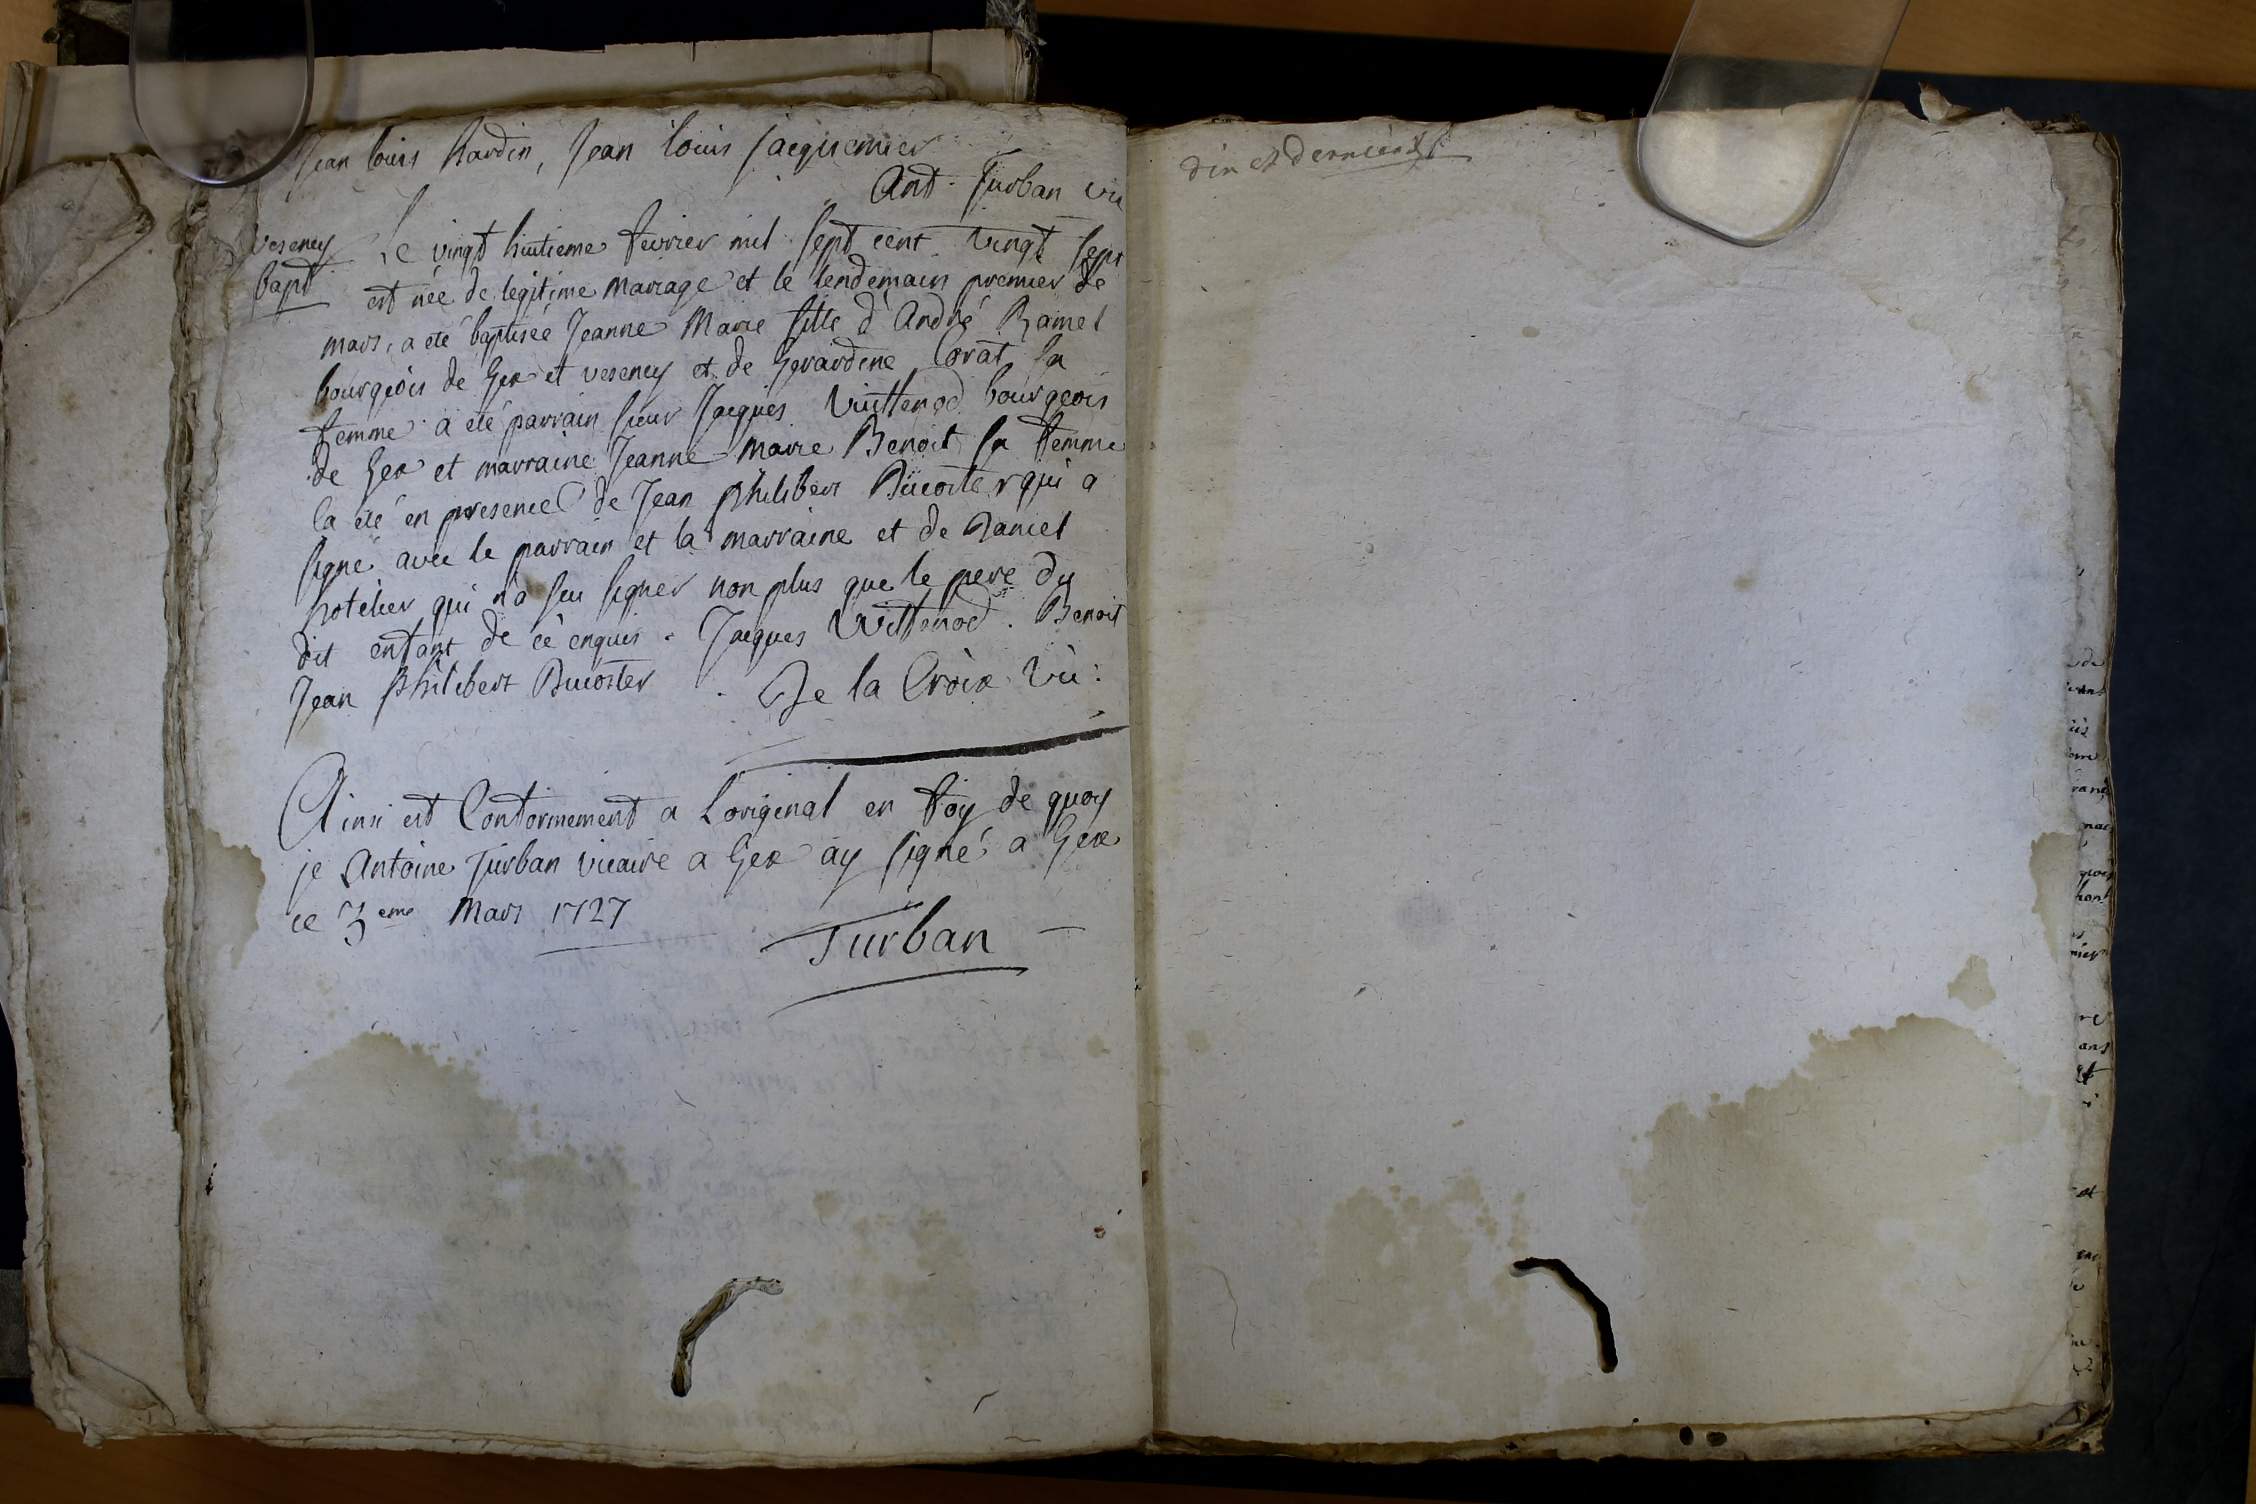 Jean louis hardin, Jean louis jacquemier
Ant. Turban vic
vesency
bapt
Le vingt huitieme fevrier mil sept cent vingt sept
est née de legitime mariage et le lendemain premier de
mars, a eté baptisée Jeanne Marie fille d'André Ramel
bourgeois de Gex et vesency et de Gerardine Corat sa
femme a eté parrain sieur Jacques Vuittenod bourgeois
de Gex et marraine Jeanne marie Benoit sa femme
la eté en presence de Jean philibert Bucoster qui a
signé avec le parrain et la marraine et de Daniel
hotelier qui n'a seu signer non plus que le pere du
dit enfant de ce enquis. Jacques Vuittenod. Benoit
Jean philibert Bucoster. De la Croix vic:
Ainsi est Conformement a Loriginal en foy de quoy
je Antoine Turban vicaire a Gex ay signé a Gex
ce 3eme Mars 1727
Turban
dix et dernier